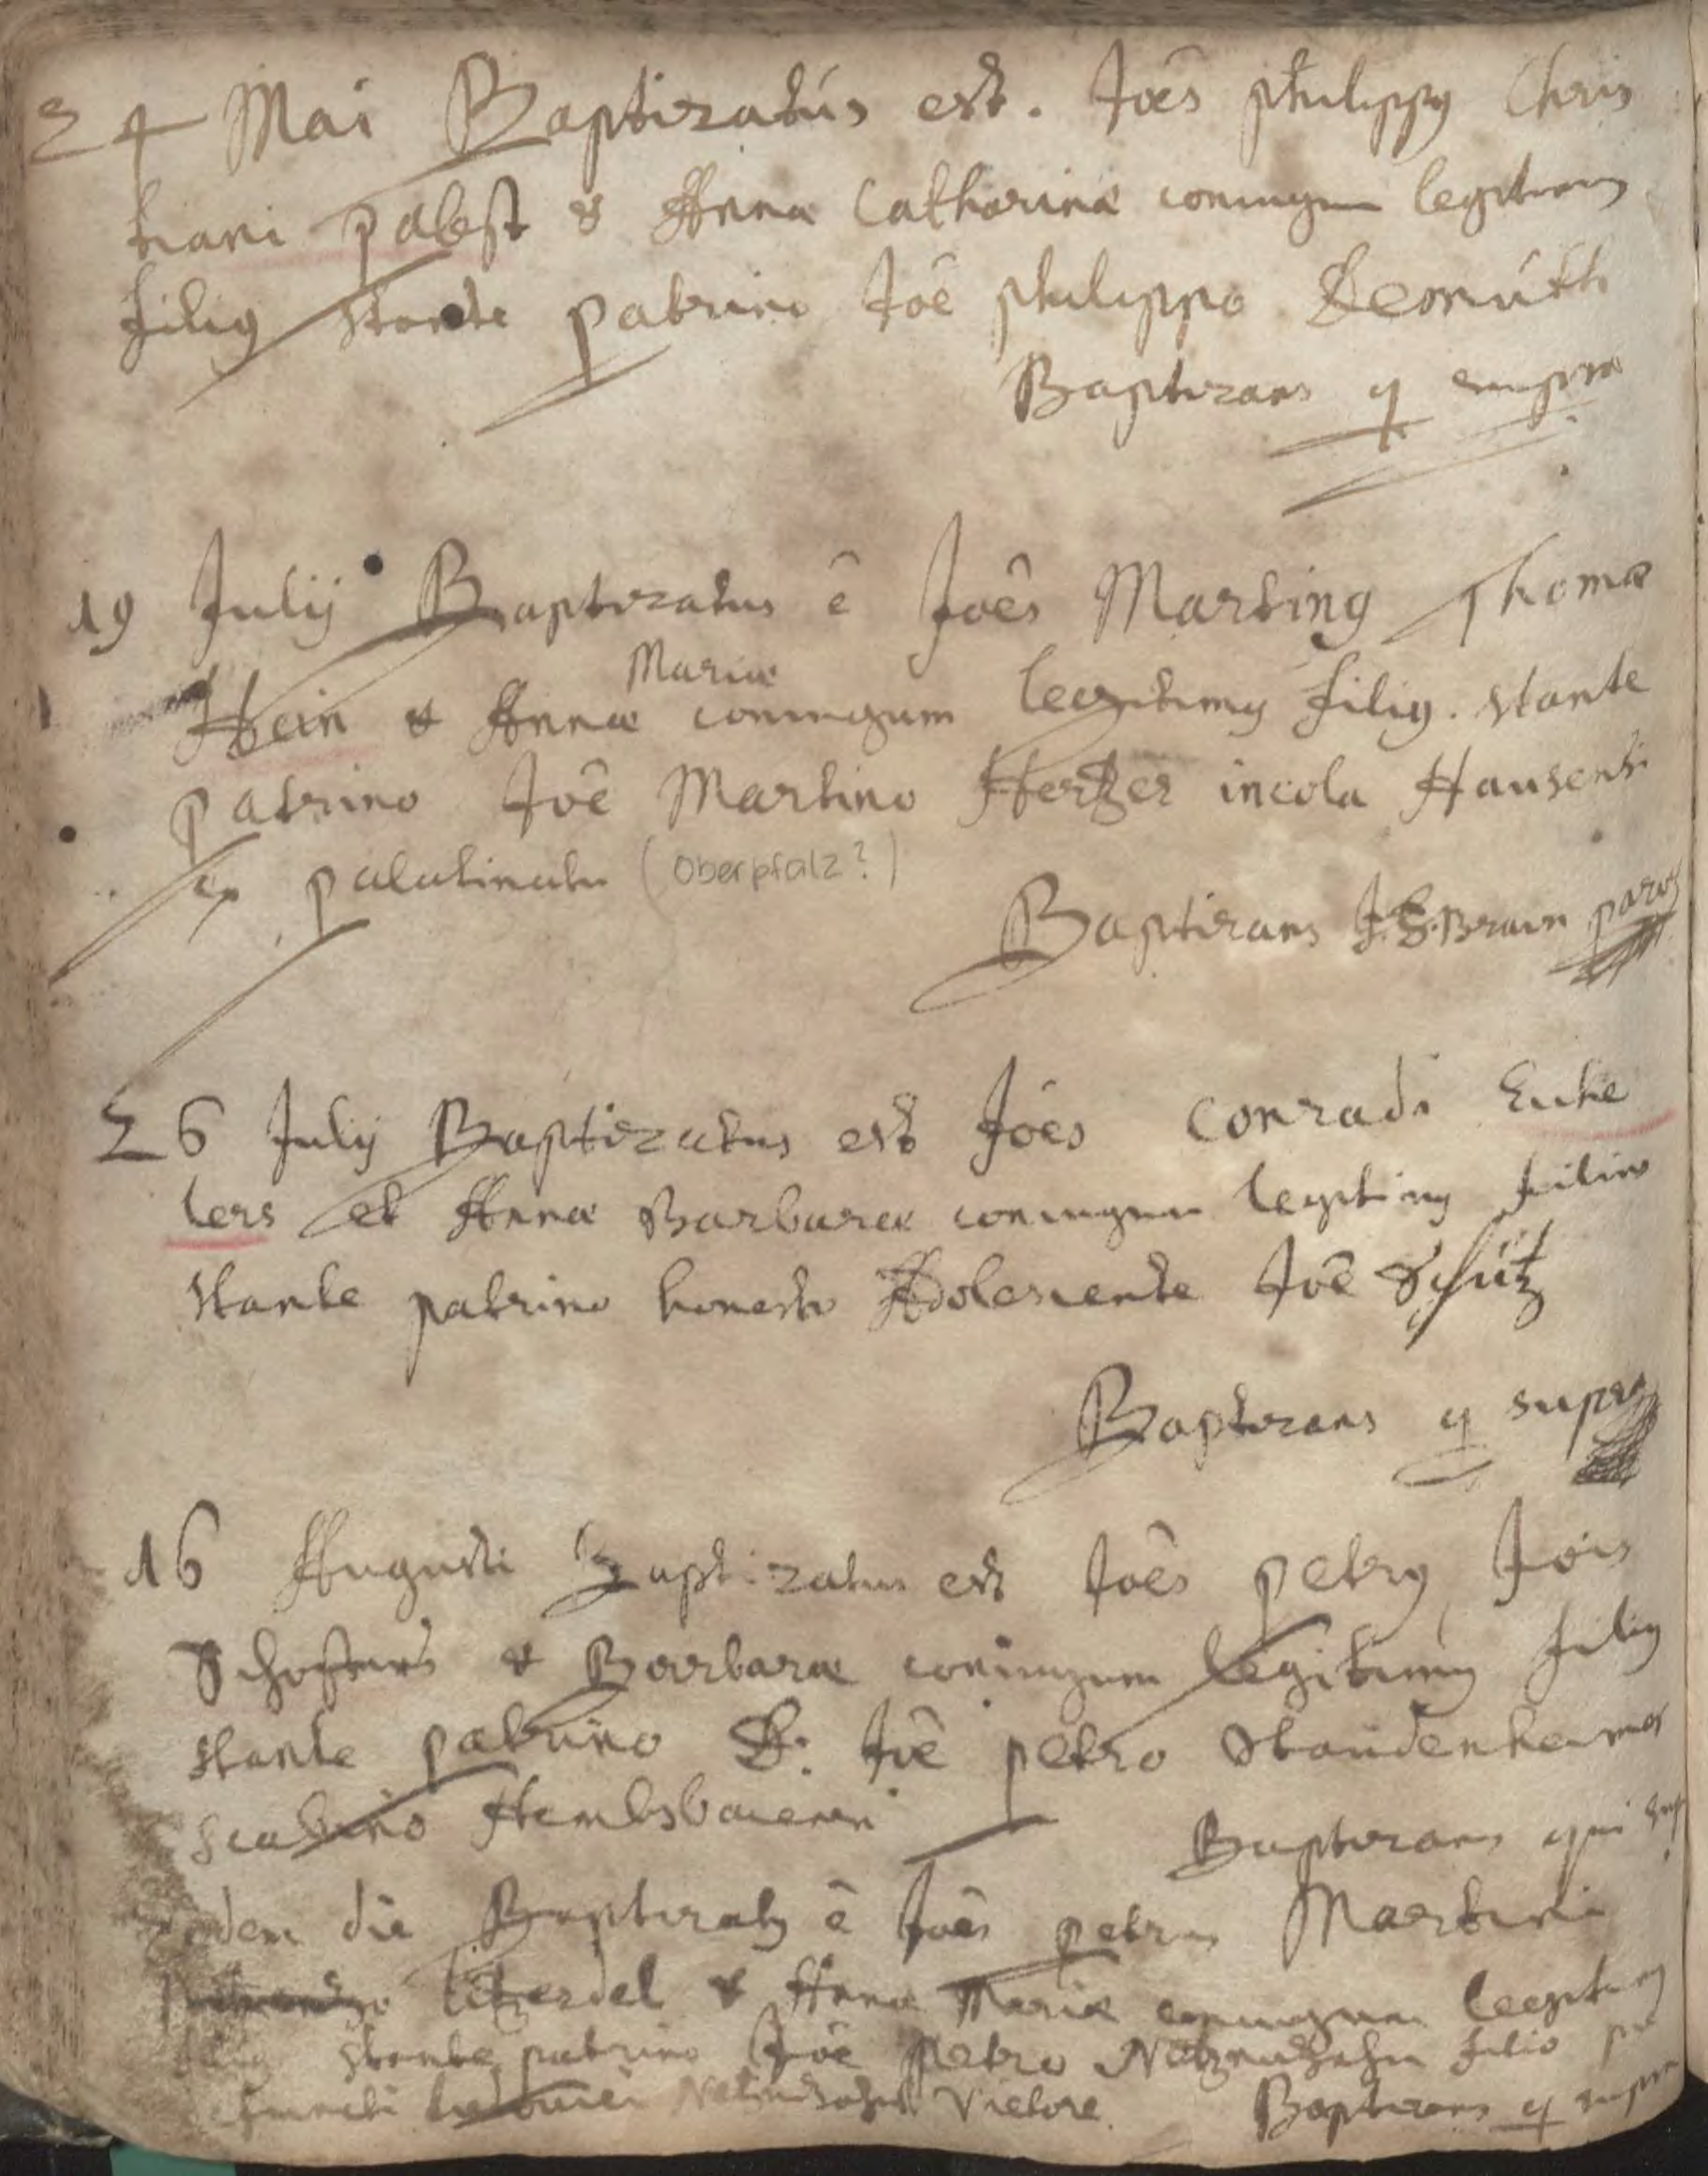 24 Mai Baptizatus est. Joês philippg Chris
tiani pabst & Annæ Catharinæ coniugum legitimg
filig stante patrino Joê philippo Demúth
Baptizans q supra
19 Julij Baptizatus ê Joês Marting Thomæ
Mariæ
Hein & Annæ coniugum legitimg filig. stante
patrino Joê Martino Hertzer incola Hausensi
ex palatinatu (Oberpfalz?)
Baptizans J. Braun
26 Julij Baptizatus est Joês Conradi Euke
lers et Annæ Barbaræ coniugum legitimg filius
stante patrino honesto Adolescente Joê Schütz
Baptizans q supra
16 Augusti Baptizatus est Joês petrg Jois
& Barbaræ coniugum legitimg filig
stante patrino D: Joê petro Staudenhemer
scabino
Baptizans qui sup
eodem die Baptizatg ê Joês petrus Martini
Litzerdel & Annæ Mariæ coniugum legitimg
filig stante patrino Joê petro filio
Baptizans q supra